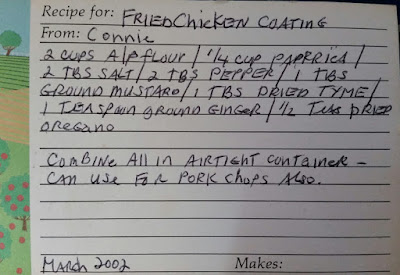 Recipe for: FRIED CHICKEN COATING
From: Connie
2 CUPS A/P FLOUR / 1/4 CUP PAPERIKA /
2 TBS SALT / 2 TBS PEPPER / 1 TBS
GROUND MUSTARD / 1 TBS DRIED TYME /
1 TEASPOON GROUND GINGER / 1/2 DRIED
OREGANO
COMBINE ALL IN AIRTIGHT CONTAINER –
CAN USE FOR PORK CHOPS ALSO.
MARCH 2002 Makes: